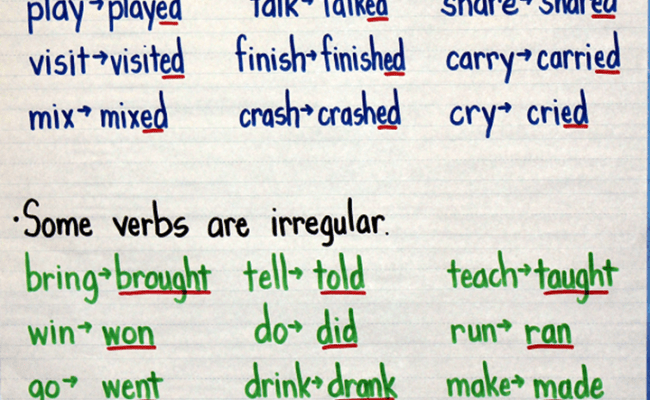 play→played talk→talked share→shared
visit→visited finish→finished carry→carried
mix→mixed crash→crashed cry→cried
·Some verbs are irregular.
bring→brought tell→told teach→taught
win→won do→did run→ran
go→went drink→drank make→made